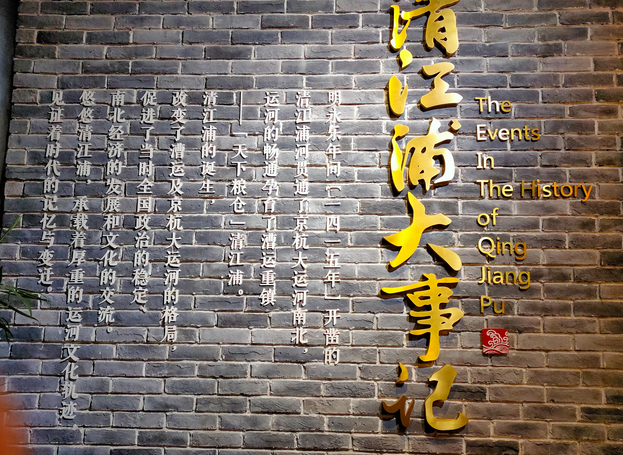 清江浦大事记
The
Events
In
The History
of
Qing
Jiang
Pu
明永乐年间[一四一五年]开凿的
清江浦河贯通了京杭大运河南北,
运河的畅通孕育了漕运重镇,
——「天下粮仓」清江浦。
清江浦的诞生,
改变了漕运及京杭大运河的格局,
促进了当时全国政治的稳定、
南北经济的发展和文化的交流。
悠悠清江浦,承载着厚重的运河文化轨迹,
见证着时代的记忆与变迁。